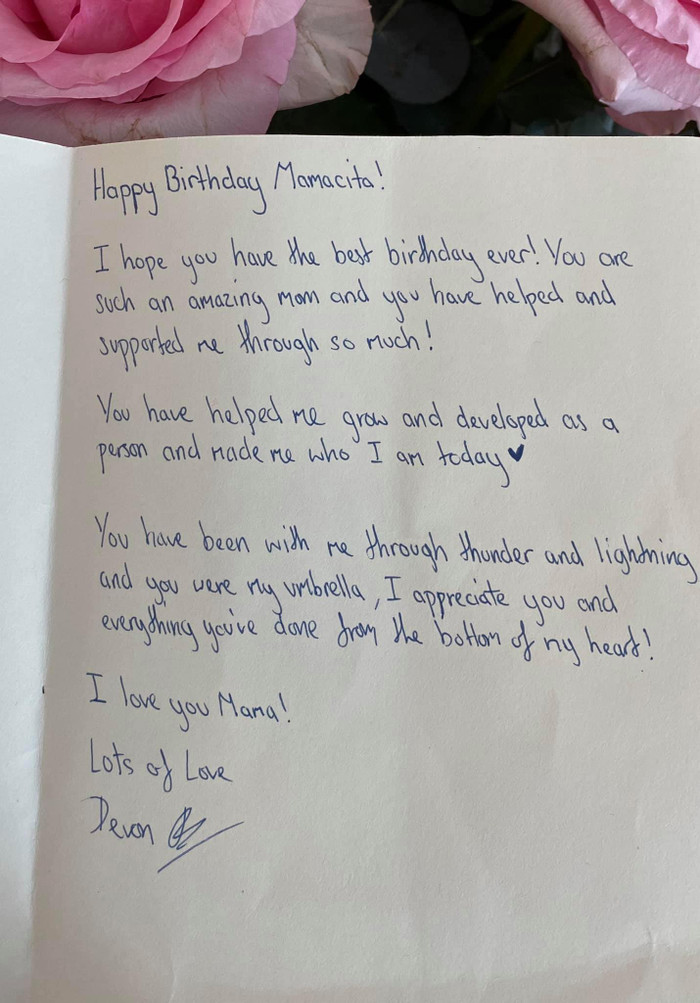 Happy Birthday Mamacita!
I hope you have the best birthday ever! You are
such an amazing mom and you have helped and
supported me through so much!
You have helped me grow and developed as a
person and made me who I am today♥
You have been with me through thunder and lightning
and you were my umbrella, I appreciate you and
everything you've done from the bottom of my heart!
I love you Mama!
Lots of Love
Devon